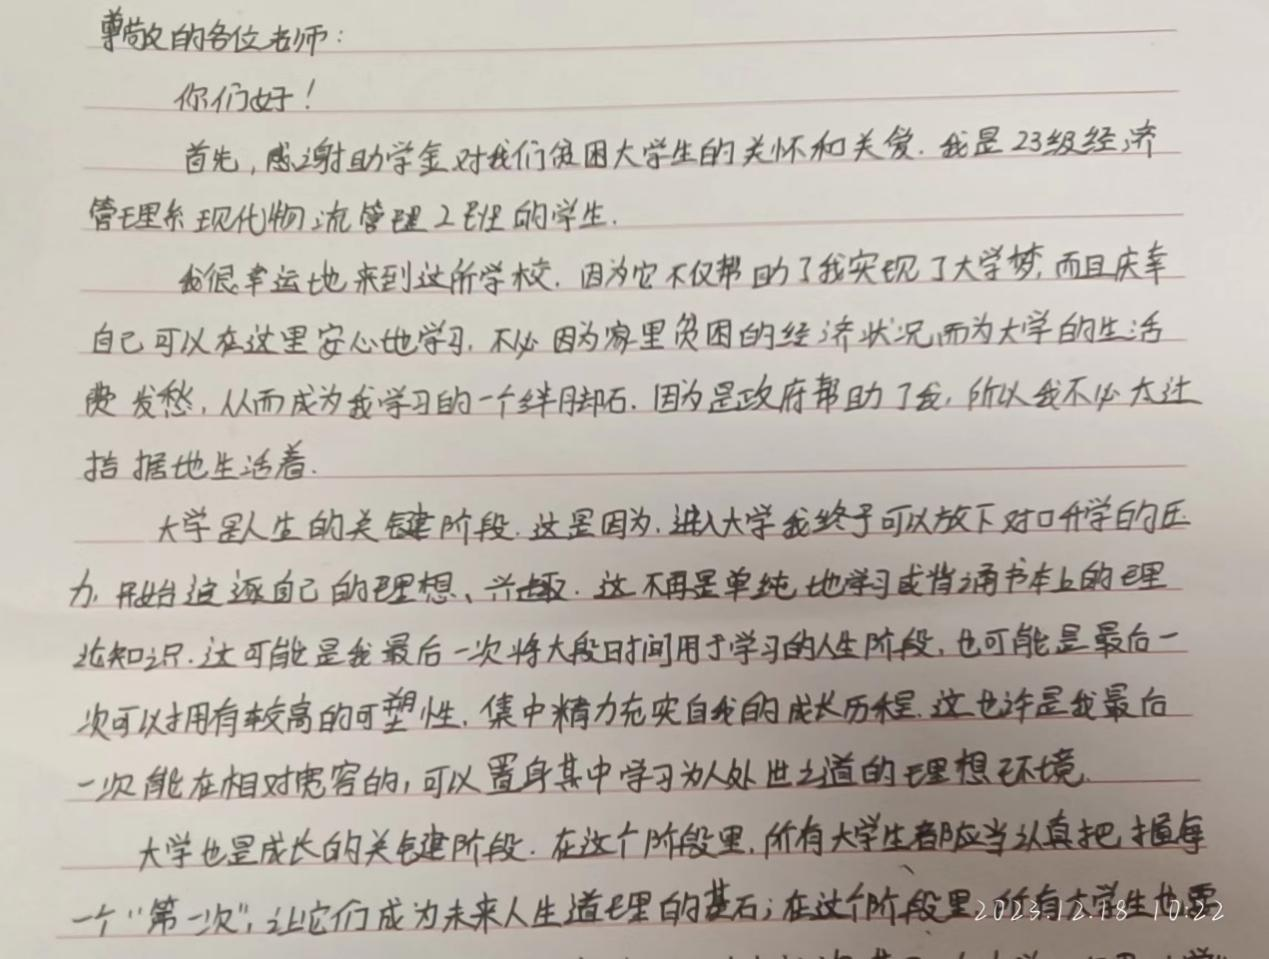 尊敬的各位老师:
你们好!
首先,感谢助学金对我们贫困大学生的关怀和关爱.我是23级经济
管理系现代物流管理2班的学生.
我很幸运地来到这所学校.因为它不仅帮助了我实现了大学梦,而且庆幸
自己可以在这里安心地学习.不必因为家里贫困的经济状况而为大学的生活
费发愁,从而成为我学习的一个绊脚石.因为是政府帮助了我,所以我不必太过
拮据地生活着.
大学是人生的关键阶段.这是因为,进入大学我终于可以放下对口升学的压
力,开始追逐自己的理想、兴趣.这不再是单纯地学习或背诵书本上的理
论知识.这可能是我最后一次将大段时间用于学习的人生阶段,也可能是最后一
次可以拥有较高的可塑性,集中精力充实自我的成长历程.这也许是我最后
一次能在相对宽容的,可以置身其中学习为人处世之道的理想环境.
大学也是成长的关键阶段.在这个阶段里,所有大学生都应当认真把握每
一个“第一次”,让它们成为未来人生道理的基石;在这个阶段里,所有大学生也需
2023.12.18 10:22